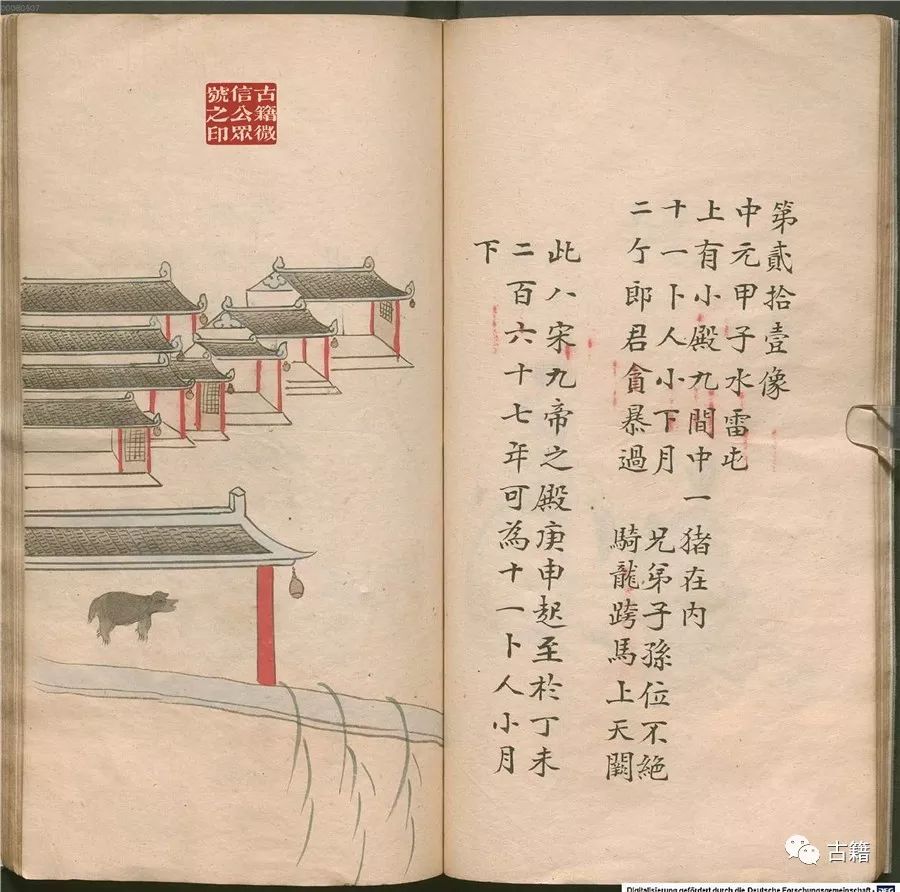 第貳拾壹像
中元甲子水雷屯
上有小殿九間中一猪在内
十一卜人小下月 兄弟子孫位不絶
二亇郎君貪暴過 騎龍跨馬上天闕
此八宋九帝之殿庚申起至於丁未
二百六十七年可為十一卜人小月
下
古籍微
信公眾
號之印
古籍
Digitalisierung gefördert durch die Deutsche Forschungsgemeinschaft